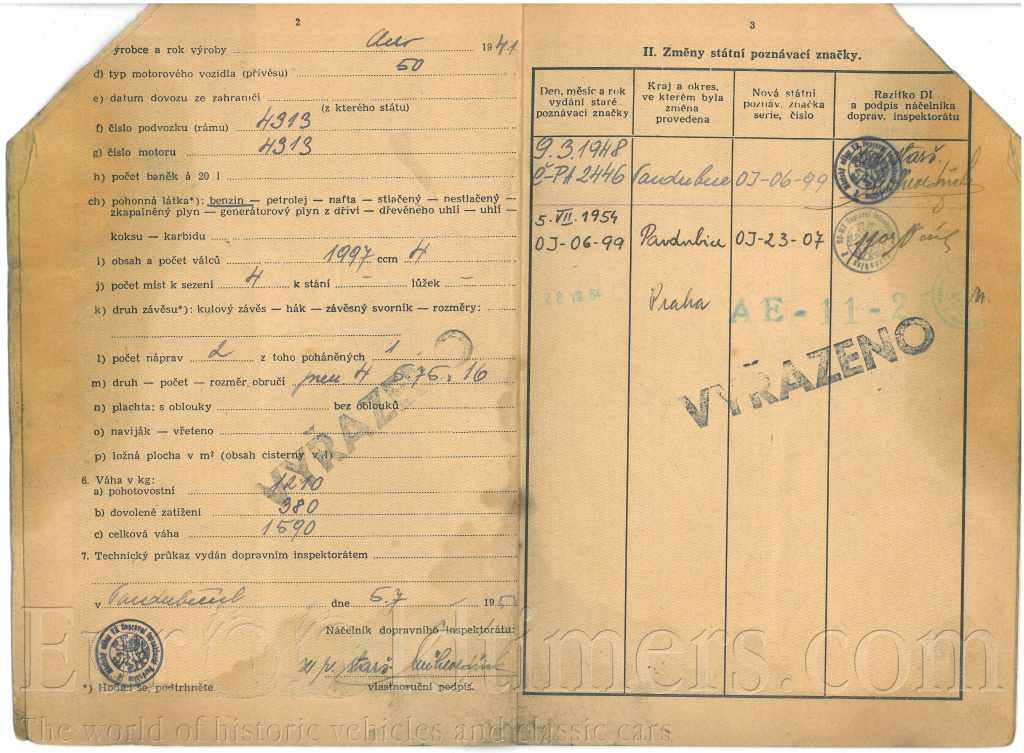 2
ýrobce a rok výroby Aero 1941
d) typ motorového vozidla (přívěsu) 50
e) datum dovozu ze zahraničí
(z kterého státu)
f) číslo podvozku (rámu) 4313
g) číslo motoru 4313
h) počet baněk à 20 l
ch) pohonná látka*): benzin — petrolej — nafta — stlačený — nestlačený —
zkapalněný plyn — generátorový plyn z dříví — dřevěného uhlí — uhlí —
koksu — karbidu
i) obsah a počet válců 1997 ccm 4
j) počet míst k sezení 4 k stání — lůžek —
k) druh závěsu*): kulový závěs — hák — závěsný svorník — rozměry:
l) počet náprav 2 z toho poháněných 1
m) druh — počet — rozměr obručí pneu 4 5.75.16
n) plachta: s oblouky bez oblouků
o) naviják — vřeteno
p) ložná plocha v m² (obsah cisterny v l)
VYŘAZENO
6. Váha v kg:
a) pohotovostní 1210
b) dovolené zatížení 380
c) celková váha 1590
7. Technický průkaz vydán dopravním inspektorátem
v Pardubicích dne 5.7 195
Náčelník dopravního inspektorátu:
starš.
*) Hodící se, podtrhněte
vlastnoruční podpis.
3
II. Změny státní poznávací značky.
Den, měsíc a rok vydání staré poznávací značky
Kraj a okres, ve kterém byla změna provedena
Nová státní poznáv. značka serie, číslo
Razítko DI a podpis náčelníka doprav. inspektorátu
9.3.1948
Č-PA 2446 Pardubice OJ-06-99
starš.
5. VII. 1954
OJ-06-99 Pardubice OJ-23-07
28 VII. 64 Praha AE-11-2
VYŘAZENO
EuroOldtimers.com
The world of historic vehicles and classic cars